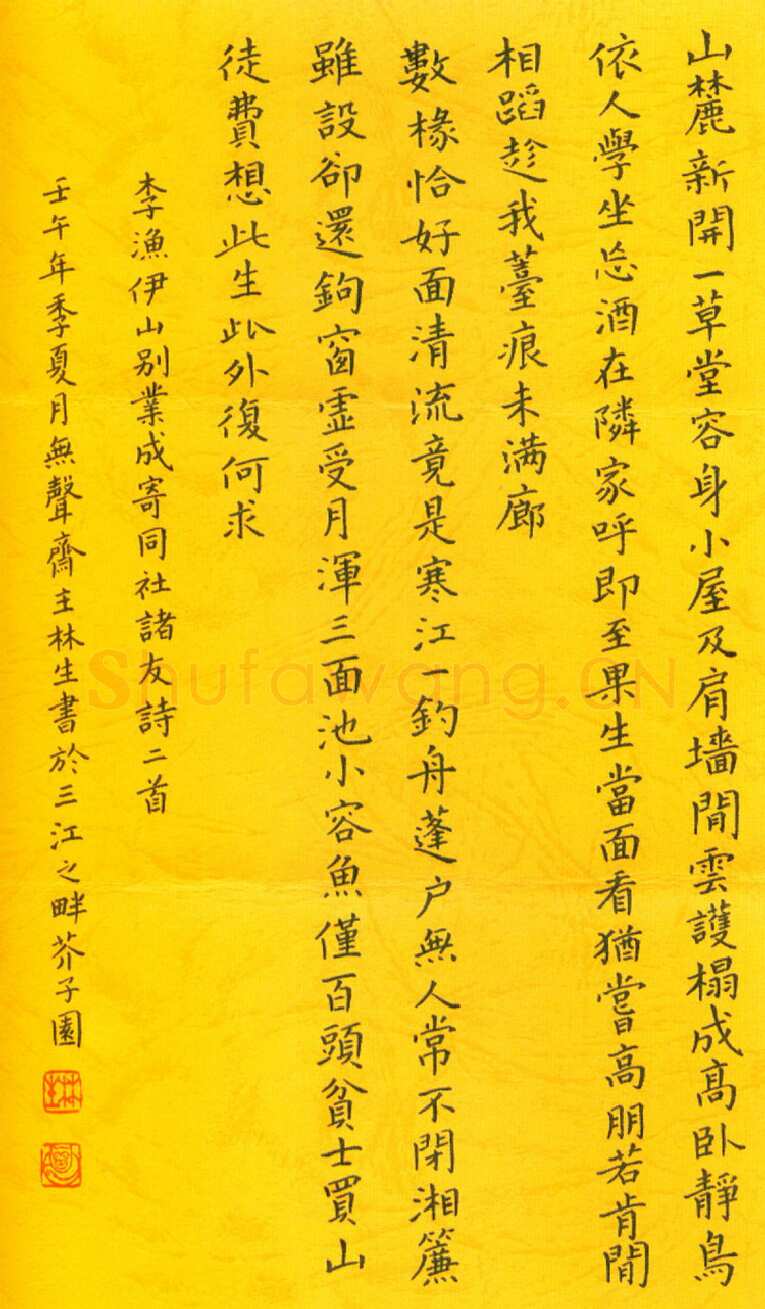 山麓新開一草堂容身小屋及肩墻閒雲護榻成高臥靜鳥
依人學坐忘酒在隣家呼即至果生當面看猶嘗高朋若肯閒
相蹈趁我薹痕未滿廊
數椽恰好面清流竟是寒江一釣舟蓬户無人常不閉湘簾
雖設卻還鉤窗虛受月渾三面池小容魚僅百頭貧士買山
徒費想此生此外復何求
李漁伊山別業成寄同社諸友詩二首
壬午年季夏月無聲齋主林生書於三江之畔芥子園
Shufawang.CN